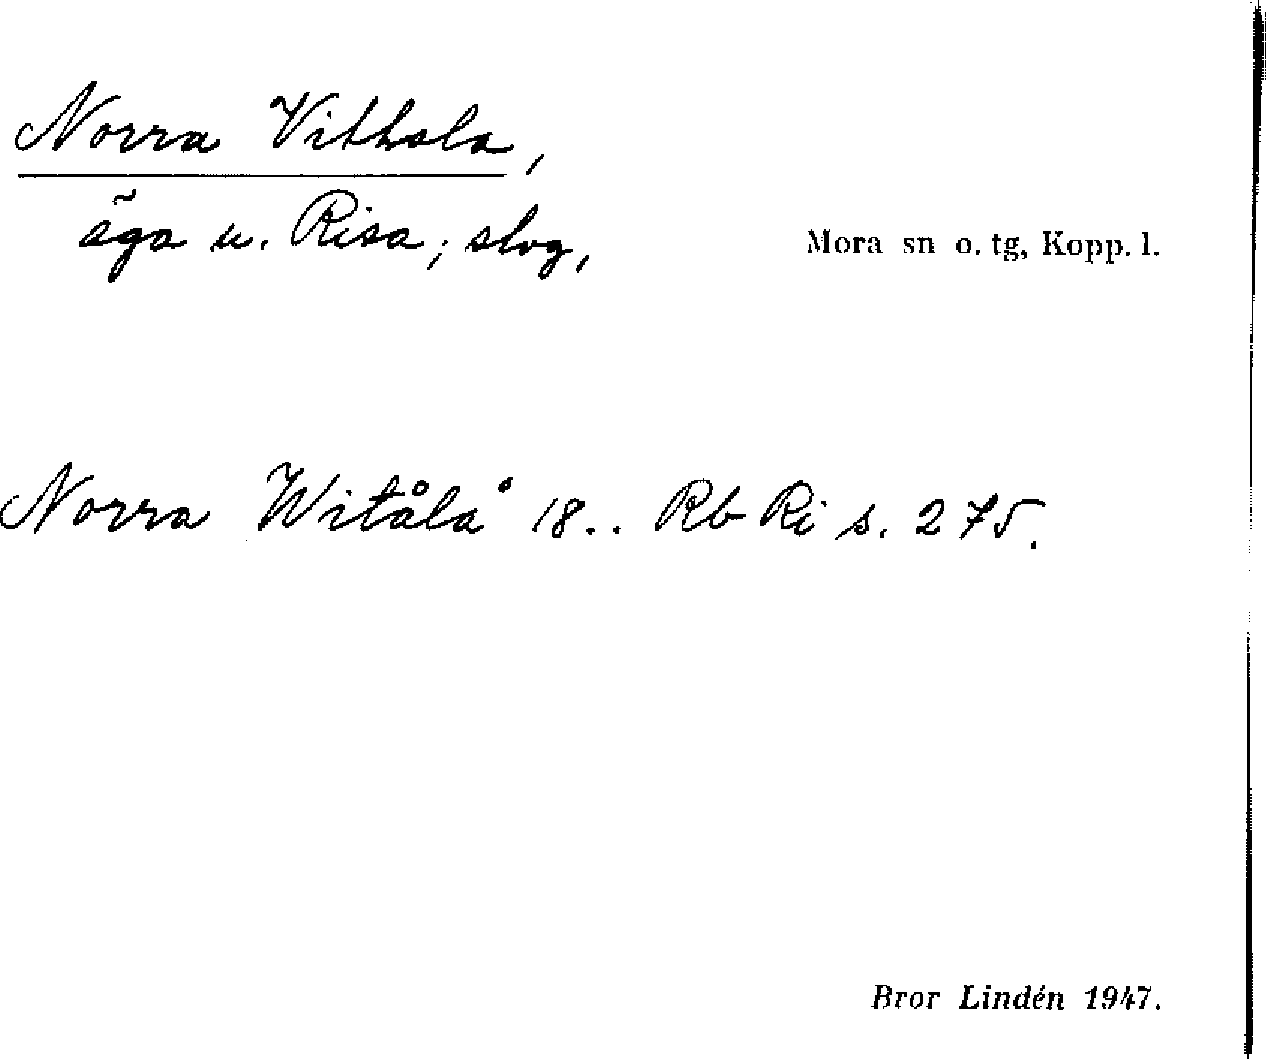 Norra Vithola,
äga u. Risa; slog,
Mora sn o. tg, Kopp. l.
Norra Witålå 18.. Rb Ri s. 275.
Bror Lindén 1947.